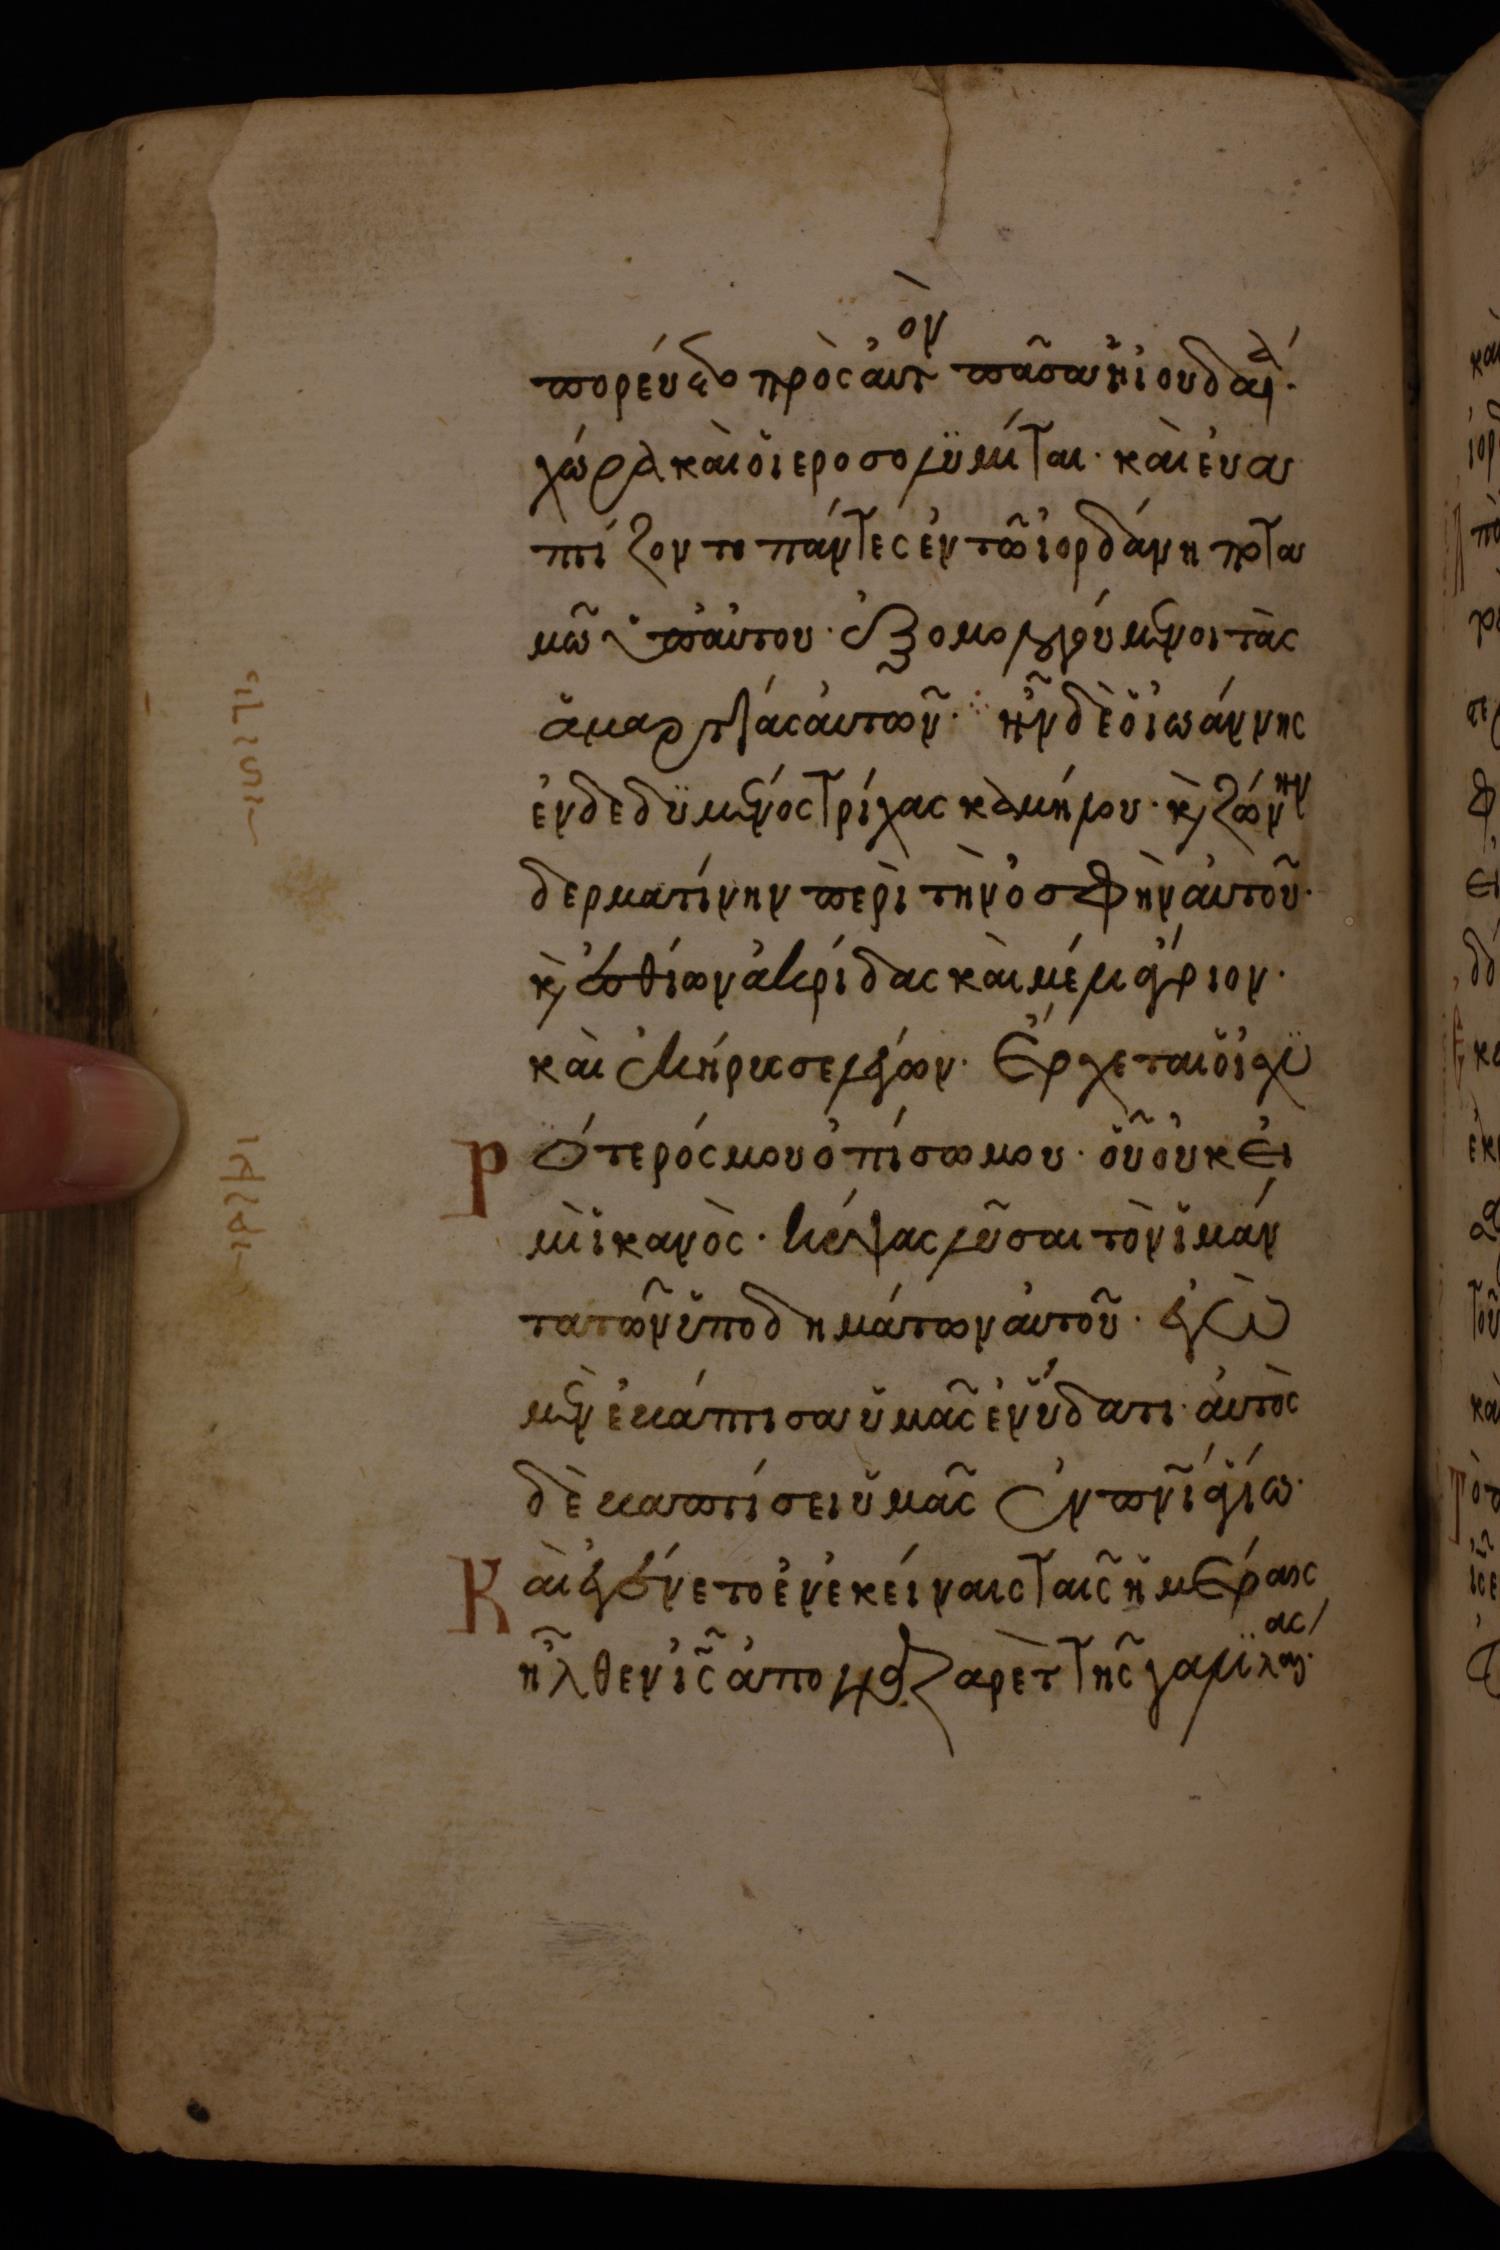 πορεύετο πρὸς ἀυτὸν πᾶσα ἡ ἰουδαία·
χώρα καὶ ὁι ἱεροσολϋμίται· καὶ ἐβα
πτίζοντο πάντες ἐν τῶ ἰορδάνη ποτα
μῶ ὑπ ἀυτου· ἐξομολογούμενοι τὰς
ἁμαρτίας ἀυτων· ἦν δὲ ὁ ἰωάννης
ἐνδεδϋμένος τρίχας καμήλου· κὶ ζώνην
δερματίνην περὶ τὴν ὀσφὴν ἀυτοῦ·
κὶ ἐσθίων ἀκρίδας καὶ μέλι ἄγριον·
καὶ ἐκήρυσε λέγων· Ἔρχεται ὁ ἰσχϋ
ρότερός μου ὀπίσω μου· ὁῦ ὀυκ ἐι
μὶ ἱκανὸς· κύψας λῦσαι τὸν ἱμάν
τα τῶν ὑποδημάτων ἀυτοῦ· ἐγὼ
μὲν ἐβάπτισα ὑμᾶς ἐν ὕδατι· ἀυτὸς
δὲ βαπτίσει ὑμᾶς ἐν πνῑ ἁγίω·
Καὶ ἐγένετο ἐν εκείναις ταῖς ἡμέραις
ἦλθεν ἰς̄ ἀπο ναζαρὲτ τῆς γαλϊλαίας